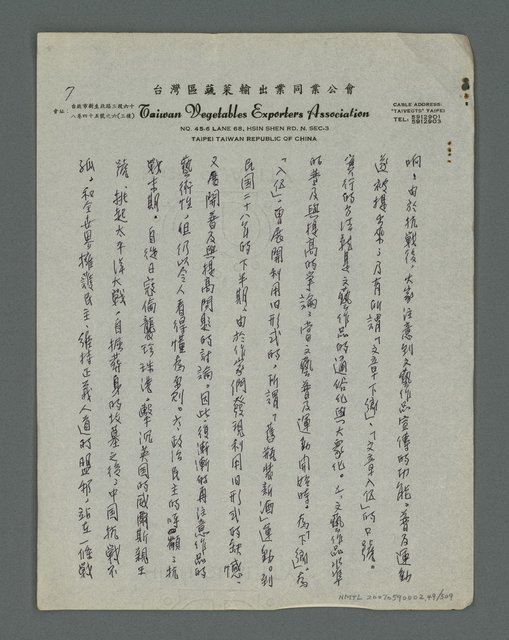 7
台灣區蔬菜輸出業同業公會
會址：台北市新生北路三段六十八巷四十五號之六(三樓)
Taiwan Vegetables Exporters Association
NO. 45-6 LANE 68, HSIN SHEN RD. N. SEC-3
TAIPEI TAIWAN REPUBLIC OF CHINA
CABLE ADDRESS:
"TAIVEGTS" TAIPEI
TEL: 5912901
5912903
响，由於抗戰後，大家注意到文藝作品宣傳的功能。普及運動
遂被提出來，乃有所謂「文章下鄉」、「文章入伍」的口號。
實行的方法就是文藝作品的通俗化與大眾化。六、文藝作品水準
的普及與提高的爭論：當文藝普及運動開始時，為「下鄉」，為
「入伍」，曾展開利用旧形式的，所謂「舊瓶裝新酒」運動。到
民國二十八年的下半期，由於作家們發現利用旧形式的缺憾，
又展開普及與提高問題的討論。因此，須漸漸的再注意作品的
藝術性，但仍以令人看得懂為原則。六、政治民主的呼籲：抗
戰末期，自從日寇偷襲珍珠港，擊沉英国的威爾斯親王
號，挑起太平洋大戰，自掘葬身的坟墓之後，中国抗戰不
孤，和全世界擁護民主、維持正義人道的盟邦，站在一條戰
NMTL 20070590002,49/509